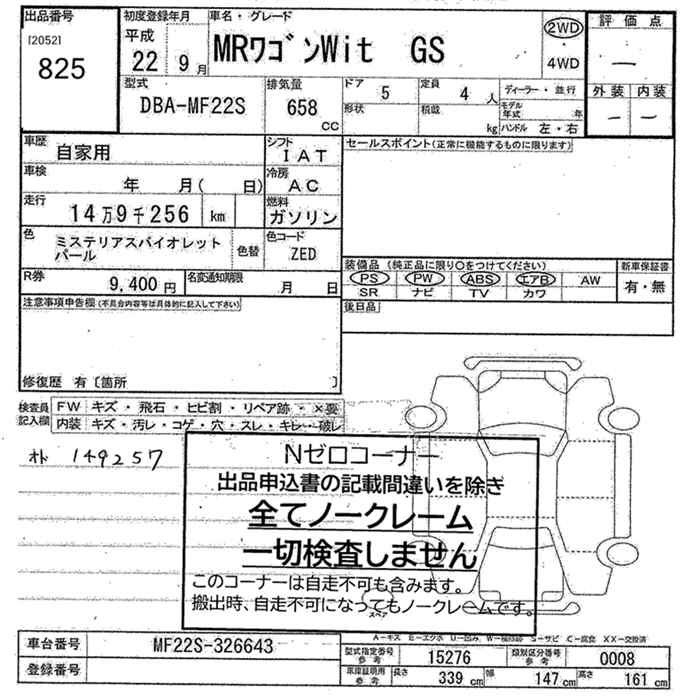 出品番号
[2052]
825
初度登録年月
平成
22 9 月
車名・グレード
MRワゴンWit GS
2WD
・
4WD
評価点
—
外装 内装
— —
型式
DBA-MF22S
排気量
658
cc
ドア 5
形状
定員 4 人
積載 kg
ディーラー・並行
モデル年式 年
ハンドル 左・右
車歴
自家用
シフト
IAT
車検
年 月( 日)
冷房
AC
走行
14万9千256 km
燃料
ガソリン
色
ミステリアスバイオレット
パール
色替
色コード
ZED
R券
9,400円
名変通知期限
月 日
セールスポイント(正常に機能するものに限ります)
装備品 (純正品に限り〇をつけてください)
PS PW ABS エアB AW
SR ナビ TV カワ
新車保証書
有・無
後日品
注意事項申告欄(不具合内容等は具体的に記入して下さい)
修復歴 有〔箇所 〕
検査員
記入欄
FW キズ・飛石・ヒビ割・リペア跡・×要
内装 キズ・汚レ・コゲ・穴・スレ・キレ・破レ
オト 149257
Nゼロコーナー
出品申込書の記載間違いを除き
全てノークレーム
一切検査しません
このコーナーは自走不可も含みます。
搬出時、自走不可になってもノークレームです。
スペア
A-キズ E-エクボ U-凹み W-補修跡 S-サビ C-腐食 XX-交換済
車台番号
MF22S-326643
登録番号
型式指定番号
参考
15276
類別区分番号
参考
0008
車庫証明用
参考
長さ 339 cm
幅 147 cm
高さ 161 cm